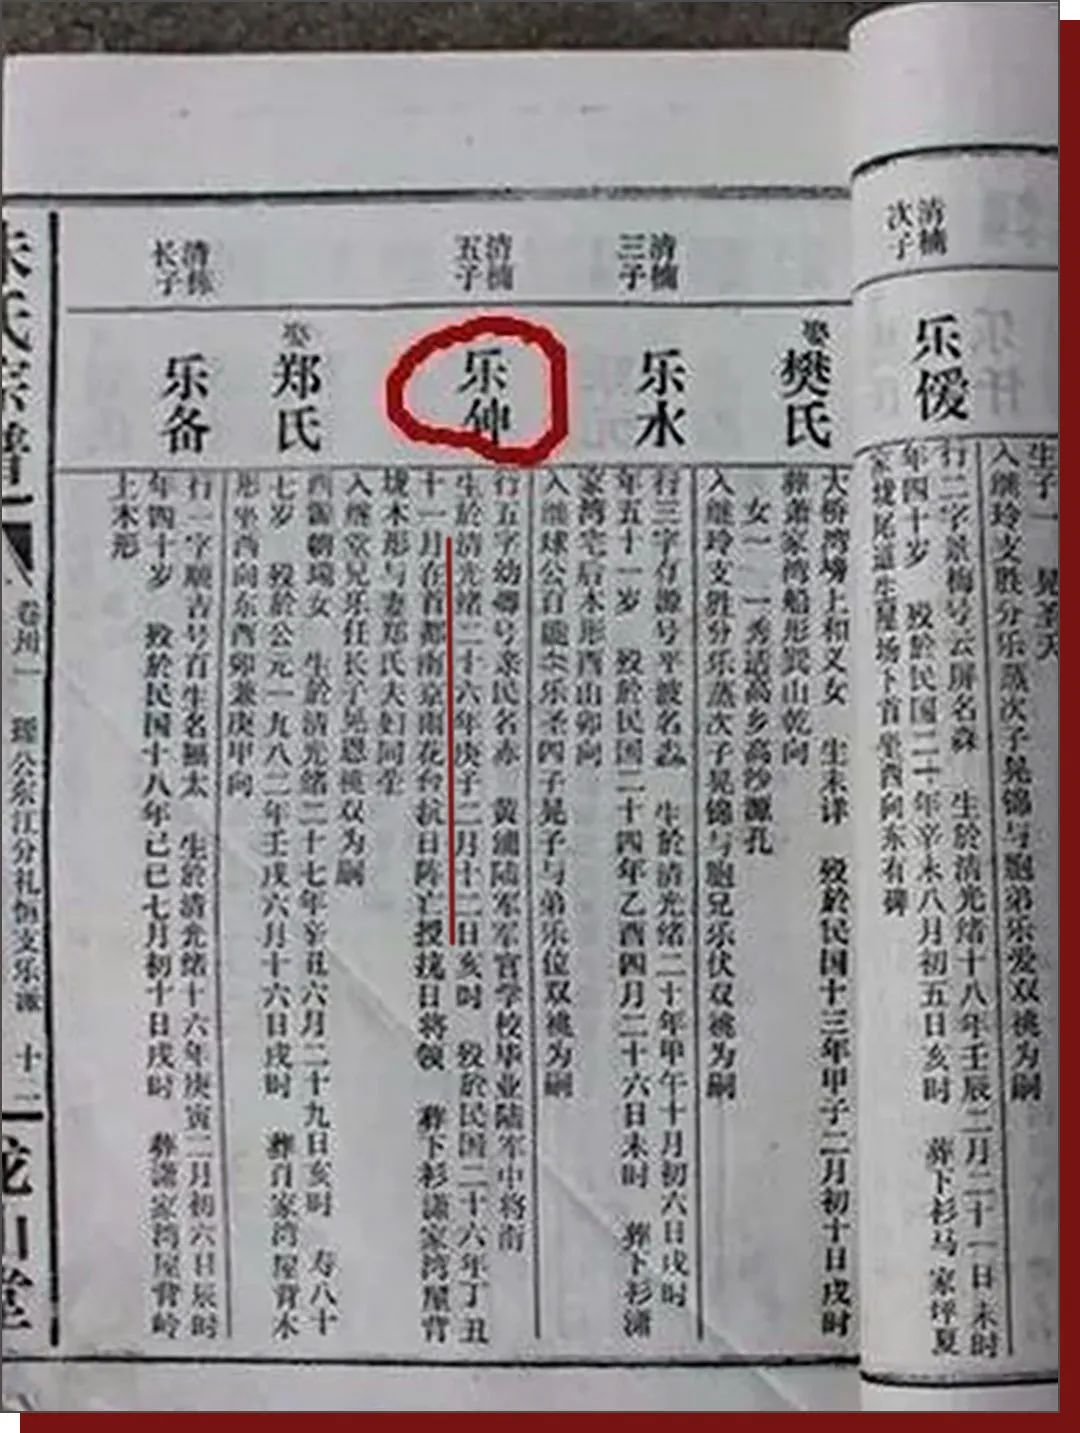 清楠
次子
乐僾
生子一 晃圣天
入继玲支胜分乐蒸次子晃锦与胞弟乐爱双祧为嗣
行二字景梅号云屏名森 生於清光绪十八年壬辰二月二十一日未时
年四十岁 殁於民国二十年辛未八月初五日亥时 葬下杉马家坪夏
家垅尾道生屋场下首坐西向东有碑
娶
樊氏
大桥湾塝上和义女 生未详 殁於民国十三年甲子二月初十日戌时
葬萧家湾船形巽山乾向
女一 一秀适高乡高沙源孔
入继玲支胜分乐蒸次子晃锦与胞兄乐伏双祧为嗣
清楠
三子
乐水
行三字存源号平波名淼 生於清光绪二十年甲午十月初六日戌时
年五十一岁 殁於民国二十四年乙酉四月二十六日未时 葬下杉潇
家湾宅后木形酉山卯向
入继球公百 乐圣四子晃子与弟乐位双祧为嗣
清楠
五子
乐
行五字幼卿号亲民名赤 黄浦陆军军官学校毕业陆军中将南
生於清光绪二十六年庚子二月十二日亥时 殁於民国二十六年丁丑
十一月在首都南京雨花台抗日阵亡授抗日将领 葬下衫潇家湾屋背
垅木形与妻郑氏夫妇同茔
入继堂兄乐任长子晃恩祧双为嗣
娶
郑氏
西 朝瑞女 生於清光绪二十七年辛丑六月二十九日亥时 寿八十
七岁 殁於公元一九八二年壬戌六月十六日戌时 葬肖家湾屋背木
形坐西向东酉卯兼庚甲向
清
长子
乐备
行一字顺吉号首生名 太 生於清光绪十六年庚寅二月初六日辰时
年四十岁 殁於民国十八年己巳七月初十日戌时 葬潇家湾屋背岭
上木形
朱氏宗谱
卷卅一 瑾公东江分礼恒支乐派 十二
龙川堂